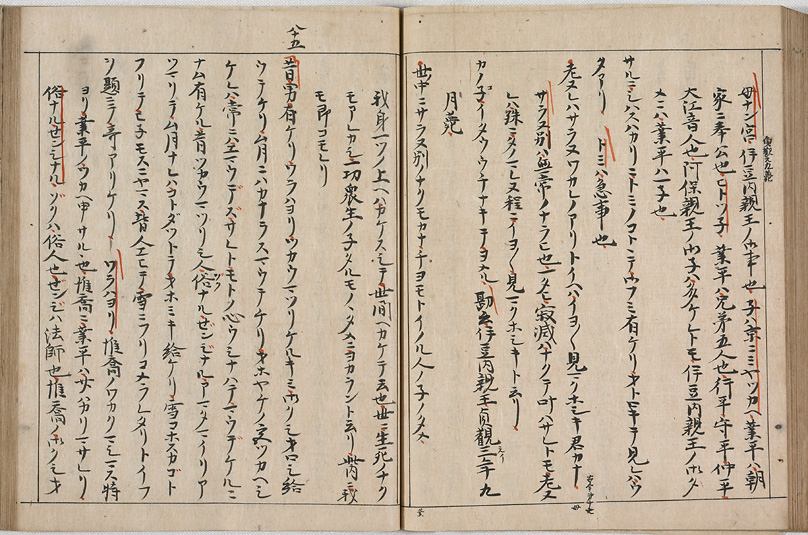 母ナン宮 伊豆内親王ノ御事也 子ハ京ニミヤツカヘ 業平ハ朝
家ニ奉公也 ヒトツ子 業平ハ兄弟五人也 行平 守平 仲平
大江音人也 阿保親王ノ御子ハ多ケレトモ 伊豆内親王ノ御
ニハ業平ハ一子也
サルニシハスハカリニトミノコトニテ御フミ有ケリ オトロキテ見レハウ
タアリ トミハ急事也
老ヌレハサラヌワカレノアリトイヘハイヨ〱見マクホシキ君カナ
サラヌ別ハ無常ノナラヒ也 マタヒ寂滅ナクテ叶ハサレトモ老ヌ
レハ殊ニタノミレヌ程ニイヨ〱見マクホシキト云リ
カノ子イタウウチナキテヨメル 勘云伊豆内親王貞観三年九
月薨
世中ニサラヌ別ノナクモカナ千ヨモトイノル人ノ子ノタメ
我身一ツノ上ヘハカケスシテ世間ヘカケテ云也 世ニ生死ナク
モアレカシ 一切衆生ノ子タルモノヽタメニヨカラントスリ 此内ニ我
モ即コモレリ
八十五
昔男有ケリ ワラハヨリツカウマツリケルキミ御クシオロシ給
ウテケリ ム月ニハカナラスマウテケリ オホヤケノ宮ツカヘシ
ケレハ常ニハエマウデズ サレトモトノ心ウシナハテマウデケルニ
ナム有ケル 昔ツカウマツリシ人俗ナルゼンジナルアマタマイリア
ツマリテ ム月ナレハコトダツトテオホミキ給ケリ 雪コホスカゴト
フリテヒネモスニヤマス 皆人エヒテ雪ニフリコメラレタリトイフ
ソ題ニテ哥アリケリ ワラハヨリ 惟喬ノワカクマシマス時
ヨリ業平ノツカヘ申サル也 惟喬ニ業平ハ廿ハカリマサレリ
俗ナルゼンジナル ゾクハ俗人也 ゼンジハ法師也 惟喬ノ御クシオ